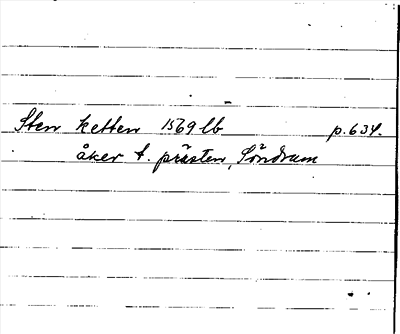 Sten ketten 1569 lb p. 634.
åker t. prästen, Söndrum